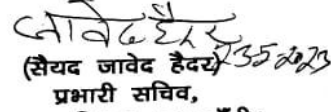 जावेद हैदर
23.5.2023
(सैयद जावेद हैदर)
प्रभारी सचिव,